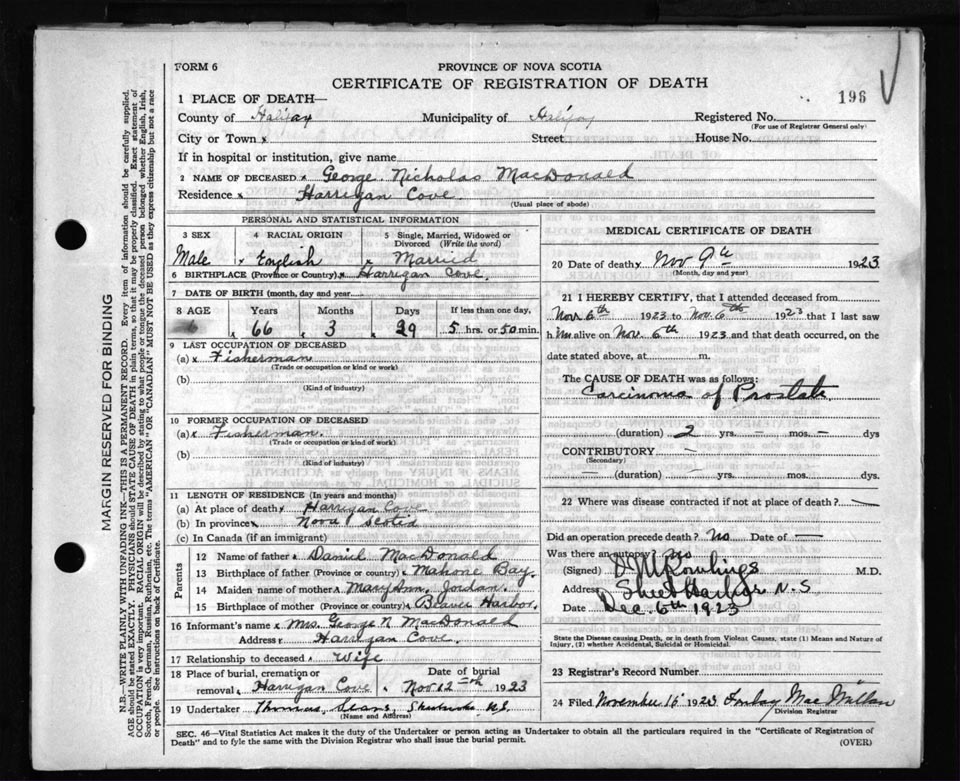 FORM 6
PROVINCE OF NOVA SCOTIA
CERTIFICATE OF REGISTRATION OF DEATH
196
1 PLACE OF DEATH—
County of Halifax Municipality of Halifax Registered No.
(For use of Registrar General only)
City or Town x Street House No.
If in hospital or institution, give name
2 NAME OF DECEASED x George Nicholas MacDonald
Residence x Harrigan Cove.
(Usual place of abode)
PERSONAL AND STATISTICAL INFORMATION
3 SEX 4 RACIAL ORIGIN 5 Single, Married, Widowed or Divorced (Write the word)
Male x English x Married
6 BIRTHPLACE (Province or Country) x Harrigan Cove.
7 DATE OF BIRTH (month, day and year)
8 AGE Years Months Days If less than one day,
66 3 29 5 hrs. or 50 min.
9 LAST OCCUPATION OF DECEASED
(a) x Fisherman
(Trade or occupation or kind or work)
(b)
(Kind of industry)
10 FORMER OCCUPATION OF DECEASED
(a) x Fisherman.
(Trade or occupation or kind of work)
(b)
(Kind of industry)
11 LENGTH OF RESIDENCE (In years and months)
(a) At place of death x Harrigan Cove
(b) In province x Nova Scotia
(c) In Canada (if an immigrant)
Parents
12 Name of father x Daniel MacDonald
13 Birthplace of father (Province or country) x Mahone Bay.
14 Maiden name of mother x Mary Ann Jordan.
15 Birthplace of mother (Province or country) x Beaver Harbor.
16 Informant's name x Mrs. George N MacDonald
Address x Harrigan Cove.
17 Relationship to deceased x Wife
18 Place of burial, cremation or removal Date of burial
Harrigan Cove x Nov 12th 1923
19 Undertaker Thomas N.S.
(Name and Address)
MEDICAL CERTIFICATE OF DEATH
20 Date of death x Nov 9th 1923
(Month, day and year)
21 I HEREBY CERTIFY, that I attended deceased from
Nov. 6th 1923 to Nov. 6th 1923 that I last saw
him alive on Nov. 6th 1923 and that death occurred, on the
date stated above, at m.
The CAUSE OF DEATH was as follows:
Carcinoma of Prostate
(duration) 2 yrs. — mos. — dys
CONTRIBUTORY —
(Secondary)
(duration) — yrs. — mos. — dys.
22 Where was disease contracted if not at place of death? —
Did an operation precede death? No Date of —
Was there an autopsy? No
(Signed) Rowlings M.D.
Address Sheet Harbor N.S
Date Dec. 6th 1923
State the Disease causing Death, or in death from Violent Causes, state (1) Means and Nature of
Injury, (2) whether Accidental, Suicidal or Homicidal.
23 Registrar's Record Number
24 Filed November 16 1923 MacMillan
Division Registrar
SEC. 46—Vital Statistics Act makes it the duty of the Undertaker or person acting as Undertaker to obtain all the particulars required in the "Certificate of Registration of
Death" and to fyle the same with the Division Registrar who shall issue the burial permit.
(OVER)
MARGIN RESERVED FOR BINDING
N.B.—WRITE PLAINLY WITH UNFADING INK—THIS IS A PERMANENT RECORD. Every item of information should be carefully supplied.
AGE should be stated EXACTLY. PHYSICIANS should STATE CAUSE OF DEATH in plain terms, so that it may be properly classified. Exact statement of
OCCUPATION is very important. RACIAL ORIGIN will be described by stating to what people or tongue the deceased person belonged whether English, Irish,
Scotch, French, German, Russian, Ruthenian, etc. The terms "AMERICAN" OR "CANADIAN" MUST NOT BE USED as they express citizenship but not a race
or people. See instructions on back of Certificate.